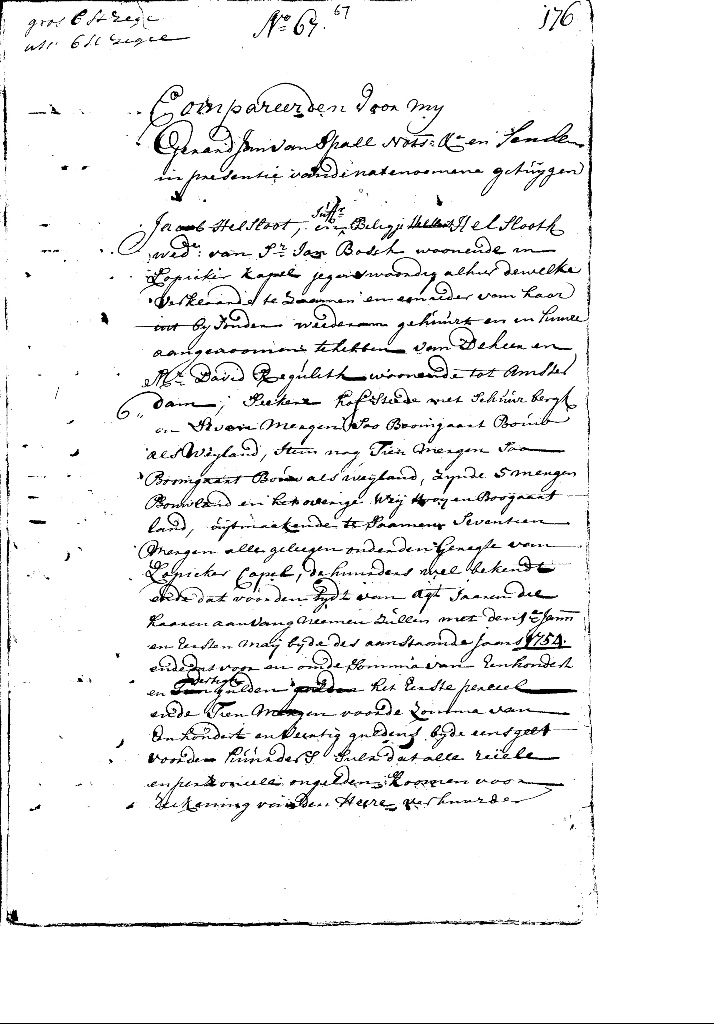 gros 6 st zegel
No 67. 67
176
uts 6 st zegel
Compareerden Voor my
Gerard Jan van Spall Nots: &a en
in presentie vande natenoemene getuygen
Jacob Helsloot, en Juffr Belijge Helslooth
wede: van Sr Jan Bosch woonende in
Lopicker Kapel jegenswoordig alhier dewelke
verklaarde te Zaamen en een ieder van haar
int byzonder weederom gehuurt en in huure
aangenoomen te hebben van De heer en
Mr David woonende tot Amster
dam, Seekere hofsteede met Schuur bergh
en Seven Mergen Soo Boomgaart Bouw
als Weyland, Item nog Tien Mergen Soo
Boomgaart Bouw als weyland, Zynde 5 mergen
Bouwland en het overige Weij Hooy en Boogaart
land, uijtmaekende te Saamen Seventien
Mergen alle geleegen onder den Geregte van
Lopicker Capel, de huurders wel bekendt
ende dat voor den tydt van Agt Jaaren die
haaren aanvang neemen Zullen met den 1e Jann
en Eersten Maij byde des aanstaande Jaars 1754.
ende dat voor en omde Somma van Eenhondert
en gulden het Eerste perceel
ende Tien Mergen voor de Zomma van
Eenhondert en guldens byde eens gelt
voorden huurders Suls dat alle reiële
en personiele ongelden Koomen voor
Reekening van Den Heere verhuurder